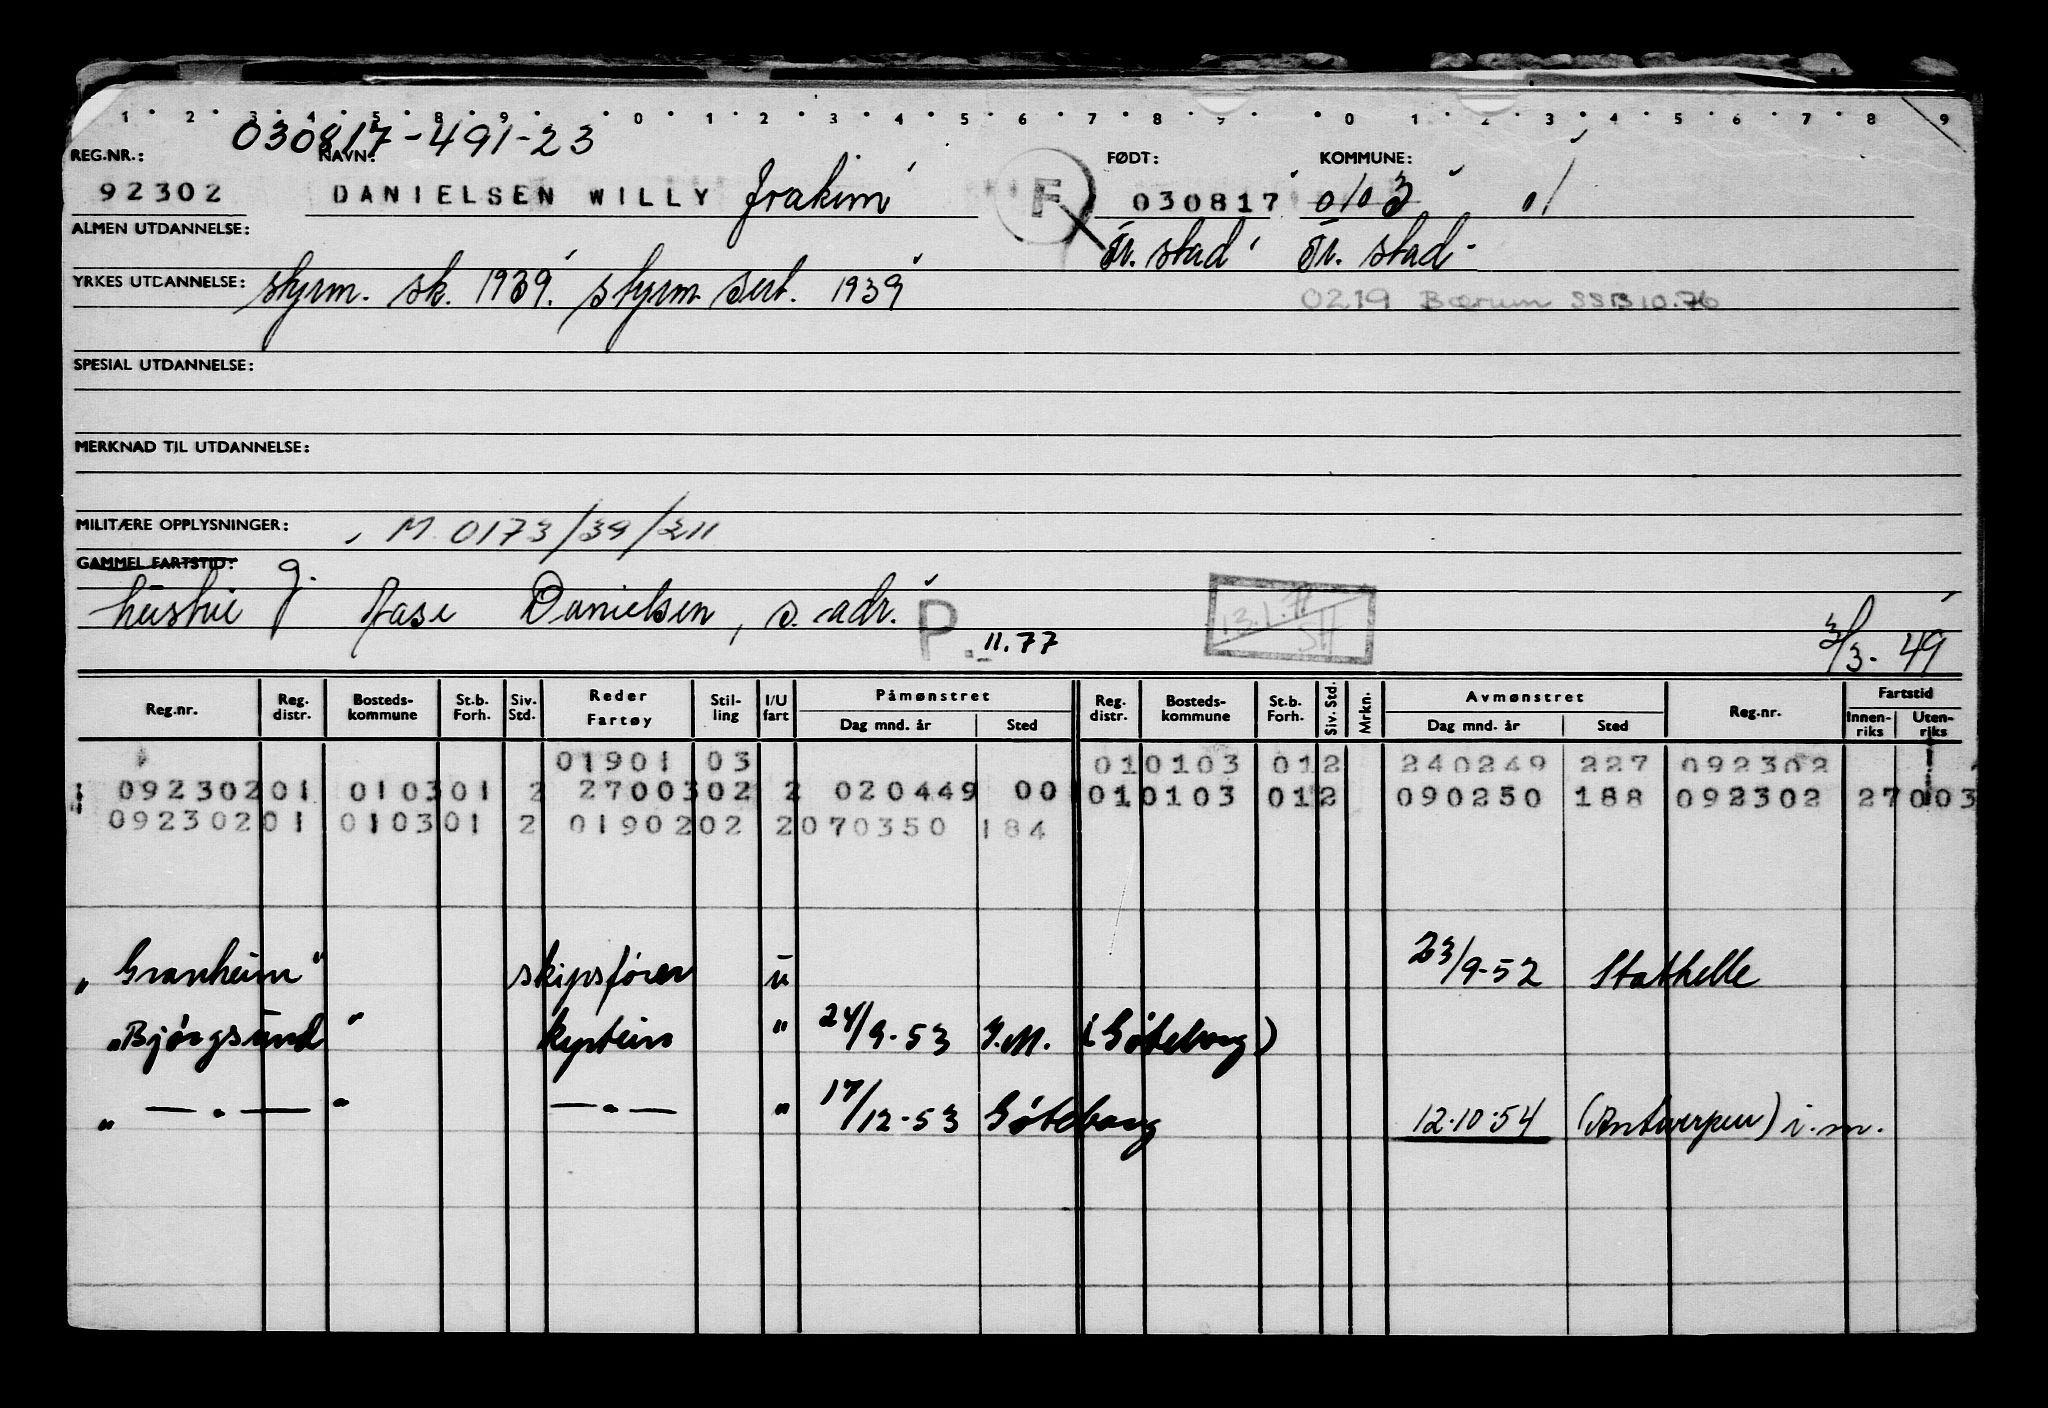 1 2 3 4 5 8 9 0 1 2 3 4 5 6 7 8 9 0 1 2 3 4 5 6 7 8 9
030817-491-23
REG.NR.: NAVN: FØDT: KOMMUNE:
92302 DANIELSEN WILLY Joakim F 030817 0103 01
ALMEN UTDANNELSE: Fr. stad Fr. stad
YRKES UTDANNELSE: styrm. sk. 1939. styrm sert. 1939
0219 Bærum SSB 10.76
SPESIAL UTDANNELSE:
MERKNAD TIL UTDANNELSE:
MILITÆRE OPPLYSNINGER: M 0173/39/211
GAMMEL FARTSTID:
hustru g. Aase Danielsen, s. adr. P. 11.77 13.1.77 SH 3/3. 49
Reg.nr. Reg. distr. Bosteds-kommune St.b. Forh. Siv. Std. Reder Fartøy Stil-ling I/U fart Påmønstret Dag mnd. år Sted Reg. distr. Bosteds-kommune St.b. Forh. Siv. Std. Mrkn. Avmønstret Dag mnd. år Sted Reg.nr. Fartstid Innen-riks Uten-riks
01901 03 010103 012 240249 227 092302
092302 01 0103 01 2 27003 02 2 020449 00 010103 012 090250 188 092302 27003
092302 01 0103 01 2 01902 02 2 070350 184
"Granheim" skipsfører u 23/9-52 Stathelle
"Bjørgsund" kaptein " 24/9-53 I.M. (Göteborg)
" — . — " — . — " 17/12-53 Göteborg 12.10.54 (Antwerpen) i.m.